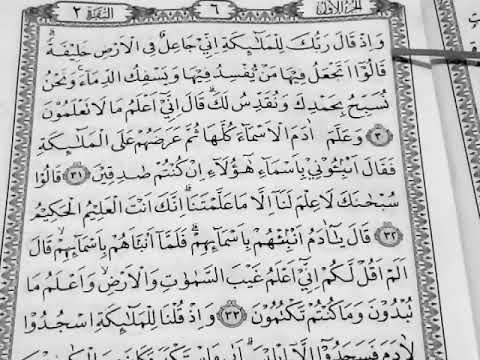 الجزء الاول ٦ البقرة ٢
وَاِذْ قَالَ رَبُّكَ لِلْمَلٰٓئِكَةِ اِنّ۪ي جَاعِلٌ فِي الْاَرْضِ خَل۪يفَةًۜ
قَالُٓوا اَتَجْعَلُ ف۪يهَا مَنْ يُفْسِدُ ف۪يهَا وَيَسْفِكُ الدِّمَٓاءَۚ وَنَحْنُ
نُسَبِّحُ بِحَمْدِكَ وَنُقَدِّسُ لَكَۜ قَالَ اِنّ۪ٓي اَعْلَمُ مَا لَا تَعْلَمُونَ
﴿٣٠﴾ وَعَلَّمَ اٰدَمَ الْاَسْمَٓاءَ كُلَّهَا ثُمَّ عَرَضَهُمْ عَلَى الْمَلٰٓئِكَةِ
فَقَالَ اَنْبِؤُ۫ن۪ي بِاَسْمَٓاءِ هٰٓؤُ۬لَٓاءِ اِنْ كُنْتُمْ صَادِق۪ينَ ﴿٣١﴾ قَالُوا
سُبْحَانَكَ لَا عِلْمَ لَنَٓا اِلَّا مَا عَلَّمْتَنَاۜ اِنَّكَ اَنْتَ الْعَل۪يمُ الْحَك۪يمُ
﴿٣٢﴾ قَالَ يَٓا اٰدَمُ اَنْبِئْهُمْ بِاَسْمَٓائِهِمْۚ فَلَمَّٓا اَنْبَاَهُمْ بِاَسْمَٓائِهِمْۙ قَالَ
اَلَمْ اَقُلْ لَكُمْ اِنّ۪ٓي اَعْلَمُ غَيْبَ السَّمٰوَاتِ وَالْاَرْضِۙ وَاَعْلَمُ مَا
تُبْدُونَ وَمَا كُنْتُمْ تَكْتُمُونَ ﴿٣٣﴾ وَاِذْ قُلْنَا لِلْمَلٰٓئِكَةِ اسْجُدُوا
لِاٰدَمَ فَسَجَدُٓوا اِلَّٓا اِبْل۪يسَۜ اَبٰى وَاسْتَكْبَرَ وَكَانَ مِنَ الْكَافِر۪ينَ